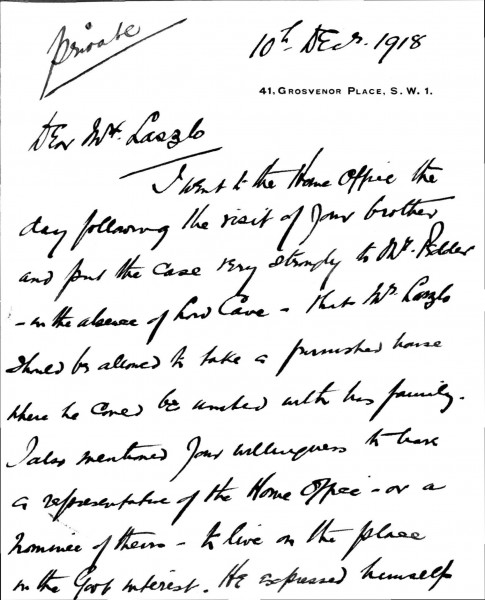 Private
10th Decr. 1918
41, GROSVENOR PLACE, S. W. 1.
Dear Mr. Laszlo
I went to the Home Office the
day following the visit of your brother
and put the case very strongly to Mr. Pedder
- in the absence of Lord Cave - that Mr. Laszlo
should be allowed to take a furnished house
where he could be united with his family.
I also mentioned your willingness to have
a representative of the Home Office - or a
nominee of theirs - to live on the place
in the Govt interest. He expressed himself